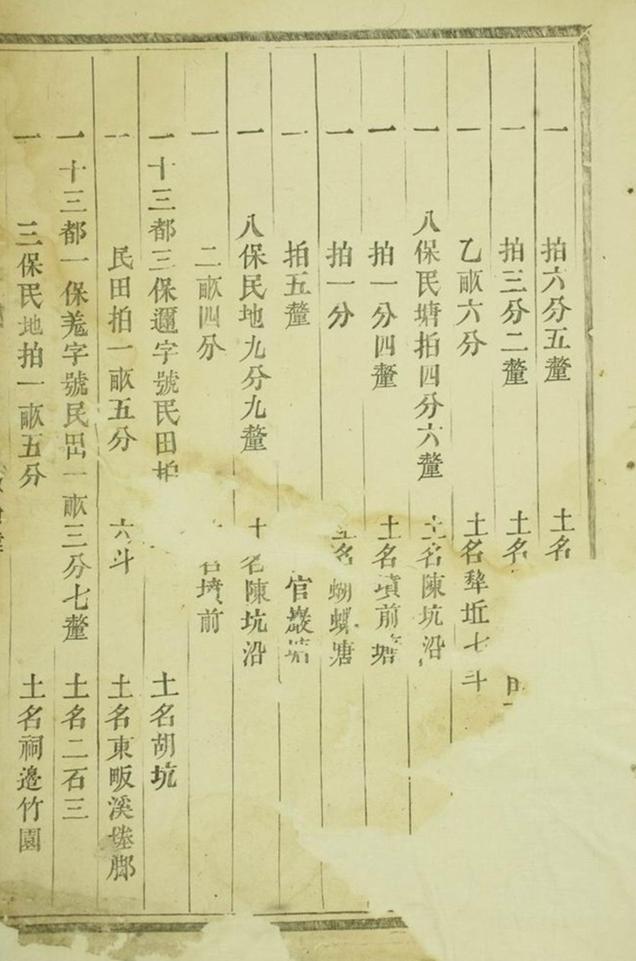 一 拍六分五釐 土名
一 拍三分二釐 土名
一 乙畝六分 土名犂坵七斗
一 八保民塘拍四分六釐 土名陳坑沿
一 拍一分四釐 土名墳前塘
一 拍一分 土名蝴螺塘
一 拍五釐 官巖塘
一 八保民地九分九釐 土名陳坑沿
一 二畝四分 名墳前
一 十三都三保邇字號民田拍 土名胡坑
一 民田拍一畝五分 六斗 土名東畈溪塍脚
一 十三都一保羗字號民田一畝三分七釐 土名二石三
一 三保民地拍一畝五分 土名祠邊竹園